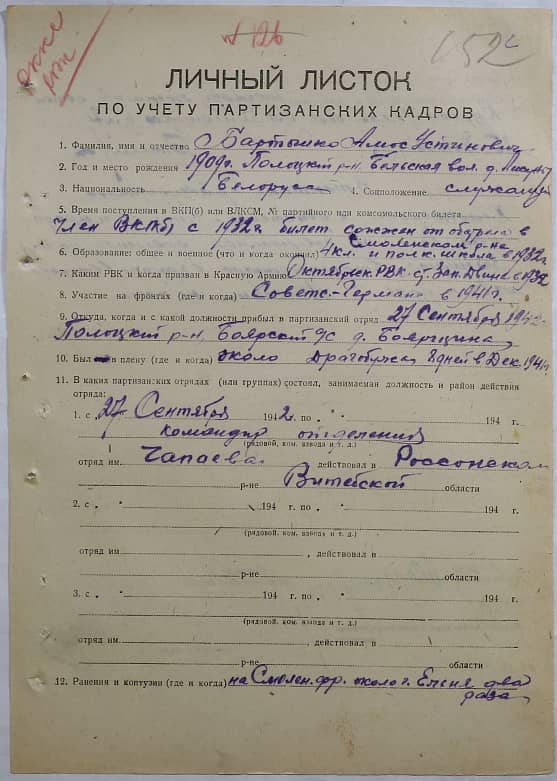 126
152
ЛИЧНЫЙ ЛИСТОК
ПО УЧЕТУ ПАРТИЗАНСКИХ КАДРОВ
1. Фамилия, имя и отчество Бартышко Амос Устинович
2. Год и место рождения 1909г. Полоцкий р-н Бельская вол. д.
3. Национальность Белорусс 4. Соцположение служащий
5. Время поступления в ВКП(б) или ВЛКСМ, № партийного или комсомольского билета
Член ВКП(б) с 1932г билет сожжен от обыска в
Смоленском р-не
6. Образование: общее и военное (что и когда окончил) 4кл. и полк. школа в 1932г
7. Каким РВК и когда призван в Красную Армию Октябрьск. РВК ст. Зап. Двина в 1932
8. Участие на фронтах (где и когда) Советс-Герман в 1941г.
9. Откуда, когда и с какой должности прибыл в партизанский отряд 27 Сентября 1942
Полоцкий р-н, Боярский с/с д. Боярщина
10. Был в плену (где и когда) около Драгобужа 8 дней в Дек. 1941г
11. В каких партизанских отрядах (или группах) состоял, занимаемая должность и район действия
отряда:
1. с 27 Сентября 1942 г. по " " 194 г.
командир отделения
(рядовой, ком. взвода и т. д.)
отряд им. Чапаева действовал в Россонском
р-не Витебской области
2. с " " 194 г. по " " 194 г.
(рядовой, ком. взвода и т. д.)
отряд им. , действовал в
р-не области
3. с " " 194 г. по " " 194 г.
(рядовой, ком. взвода и т. д.)
отряд им. действовал в
р-не области
12. Ранения и контузии (где и когда) на Смолен. фр. около г. Ельня два
раза